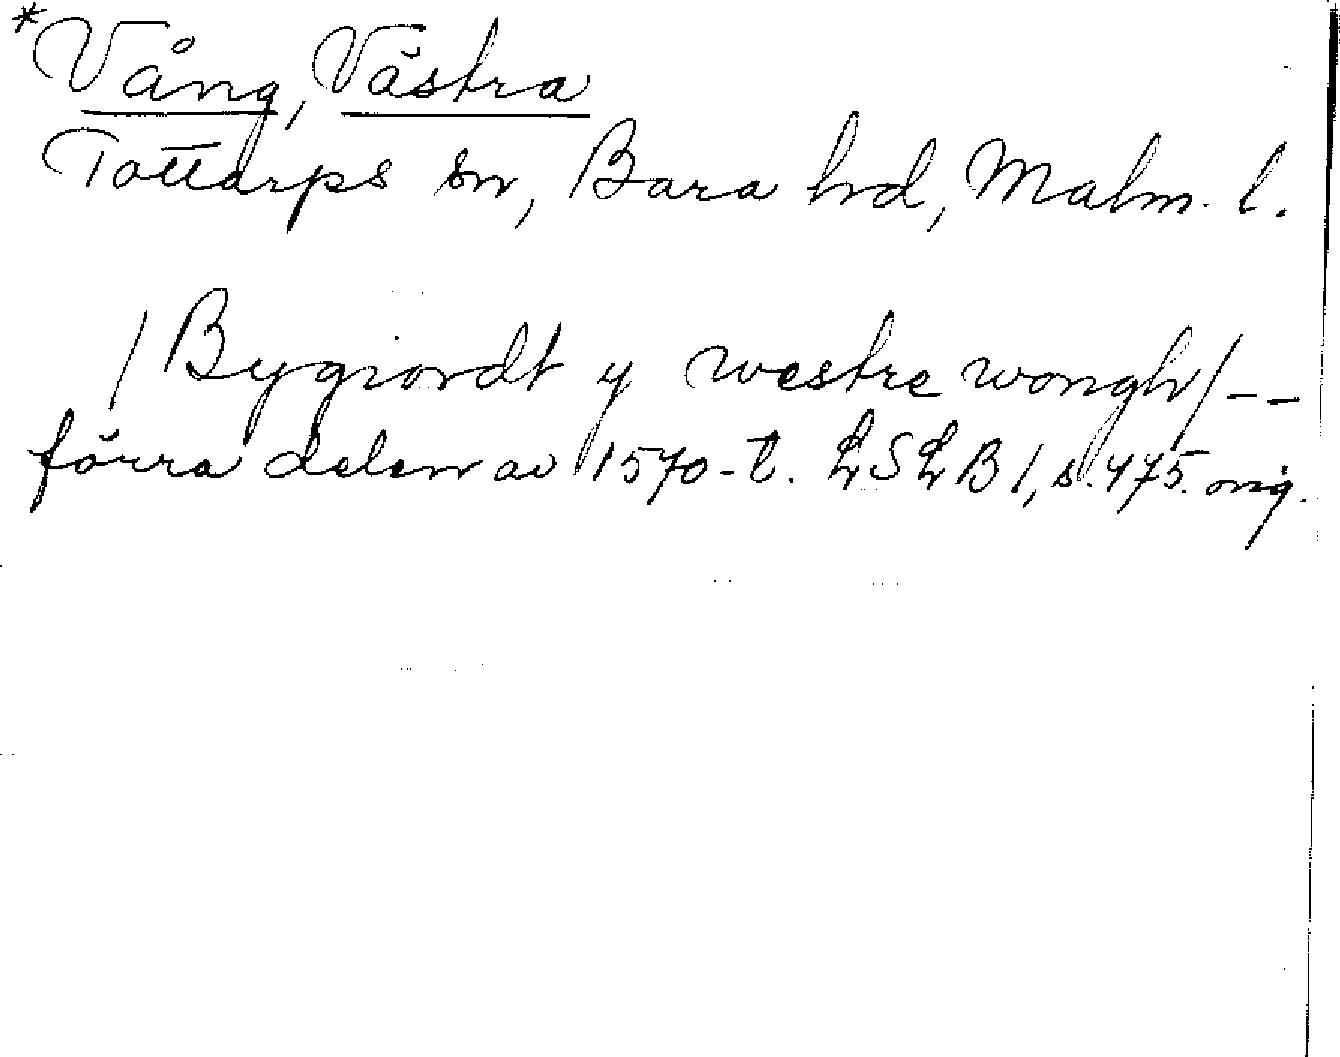 *Vång, Västra
Tottarps sn, Bara hd, Malm. l.
/Bygiordt y westre wongh/--
förra delen av 1570-t. LSLB 1, s. 475. orig.